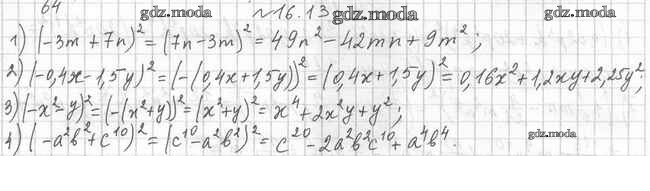 64 №16.13 gdz.moda gdz.moda gdz.moda
1) (-3m + 7n)² = (7n - 3m)² = 49n² - 42mn + 9m²;
2) (-0,4x - 1,5y)² = (-(0,4x + 1,5y))² = (0,4x + 1,5y)² = 0,16x² + 1,2xy + 2,25y²;
3) (-x² - y)² = (-(x² + y))² = (x² + y)² = x⁴ + 2x²y + y²;
4) (-a²b² + c¹⁰)² = (c¹⁰ - a²b²)² = c²⁰ - 2a²b²c¹⁰ + a⁴b⁴. gdz.moda